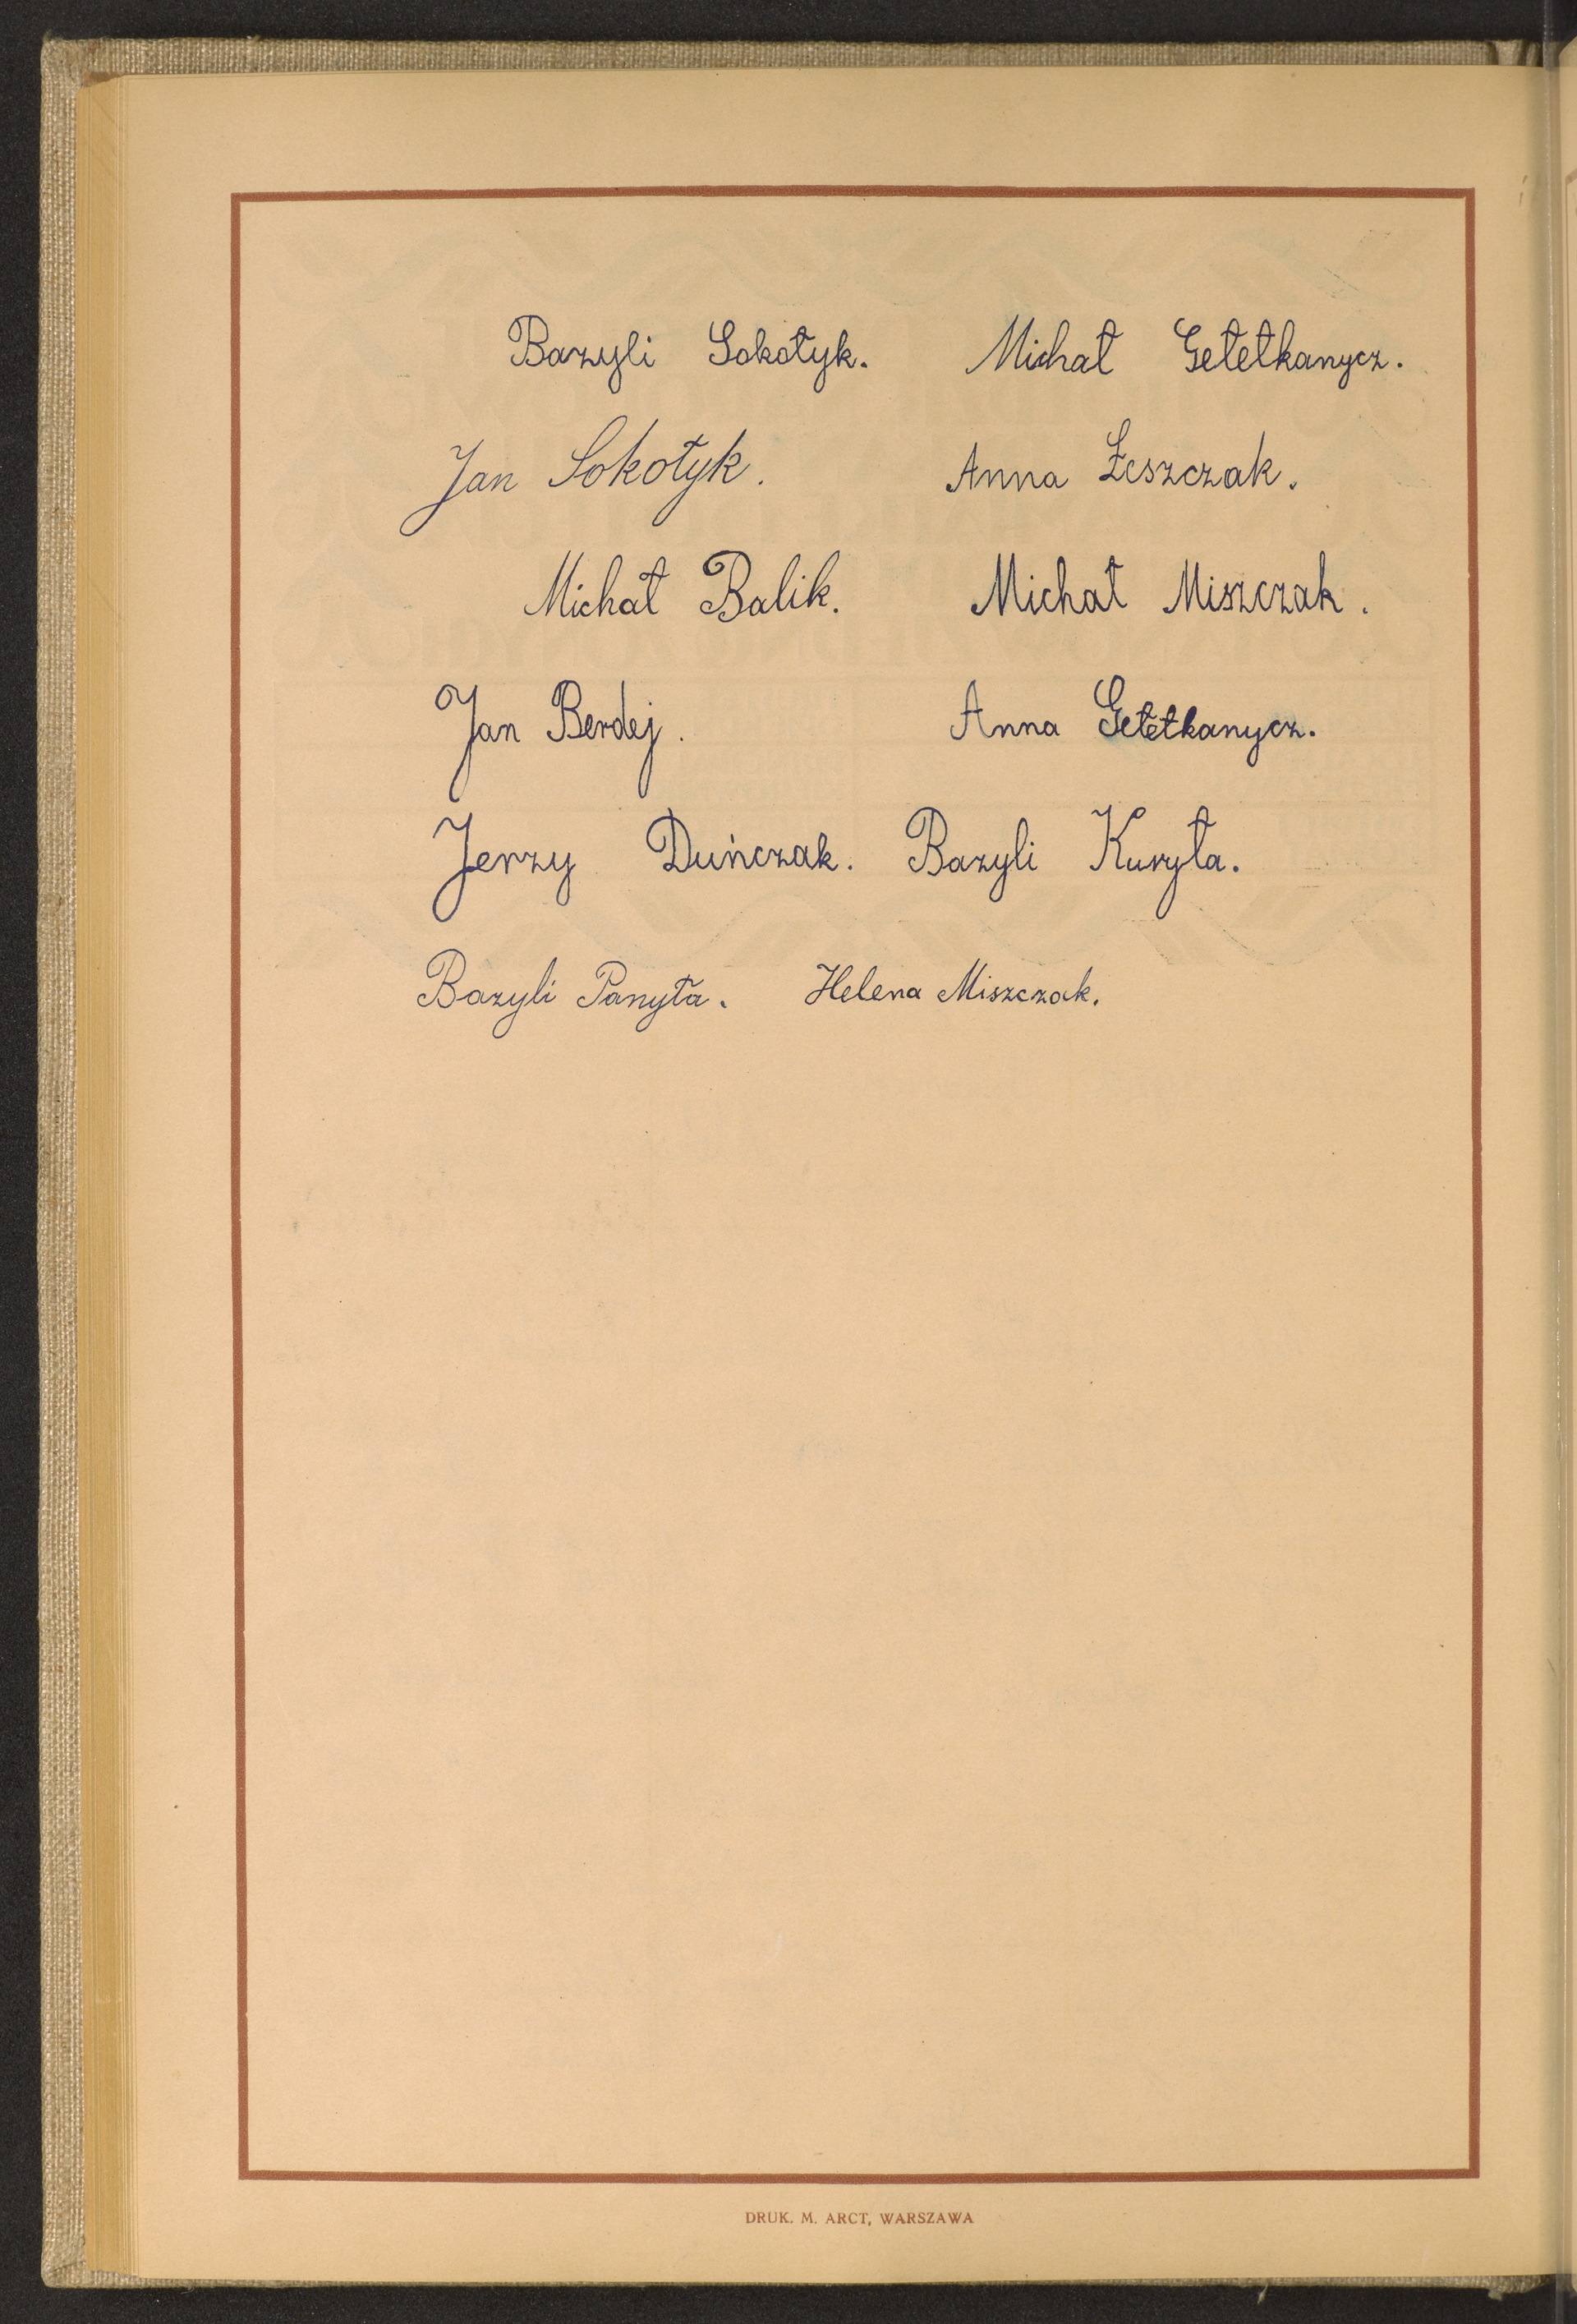 Bazyli Sokołyk. Michał Gełetkanycz.
Jan Sokołyk. Anna Łeszczak.
Michał Balik. Michał Miszczak.
Jan Berdej. Anna Gełetkanycz.
Jerzy Duńczak. Bazyli Kuryła.
Bazyli Panyła. Helena Miszczak.
DRUK. M. ARCT, WARSZAWA